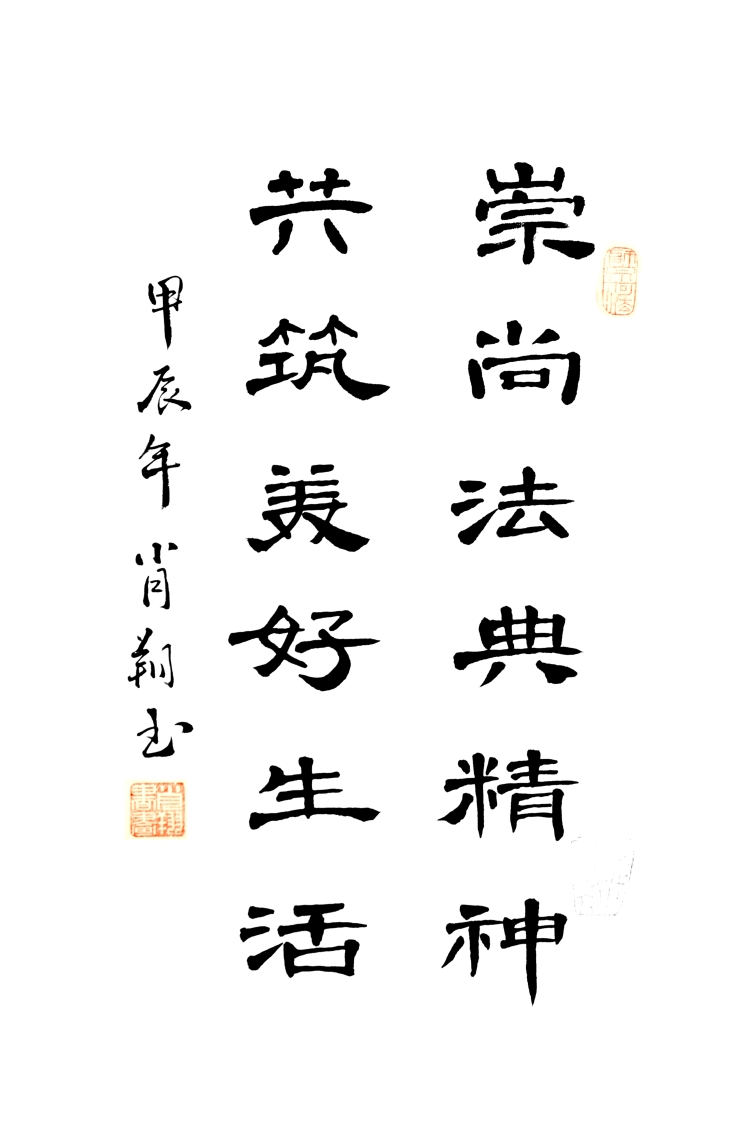 崇尚法典精神
共筑美好生活
甲辰年肖翔书
肖翔书画